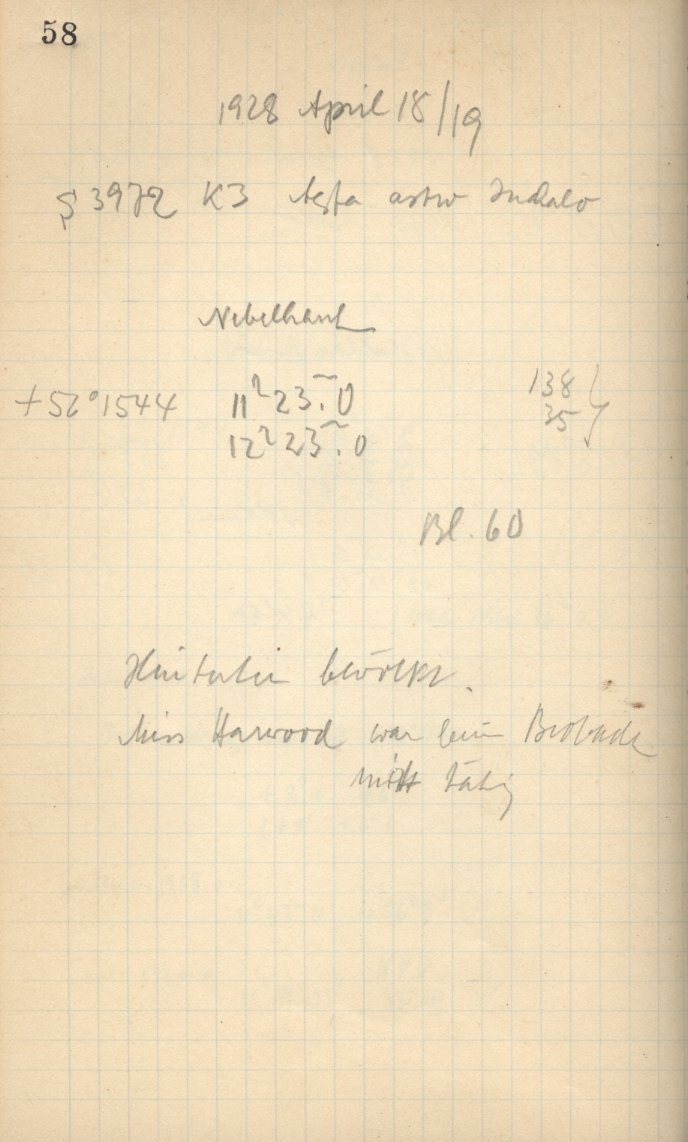 58
1928 April 18/19
S 3972 K3 Agfa astro Isolar
Nebelhaut
+52°1544 11ʰ23ᵐ.0 138
12ʰ23ᵐ.0 35
Bl. 60
Hinterhin bewölkt.
Miss Harwood war beim Beobach
mit tätig